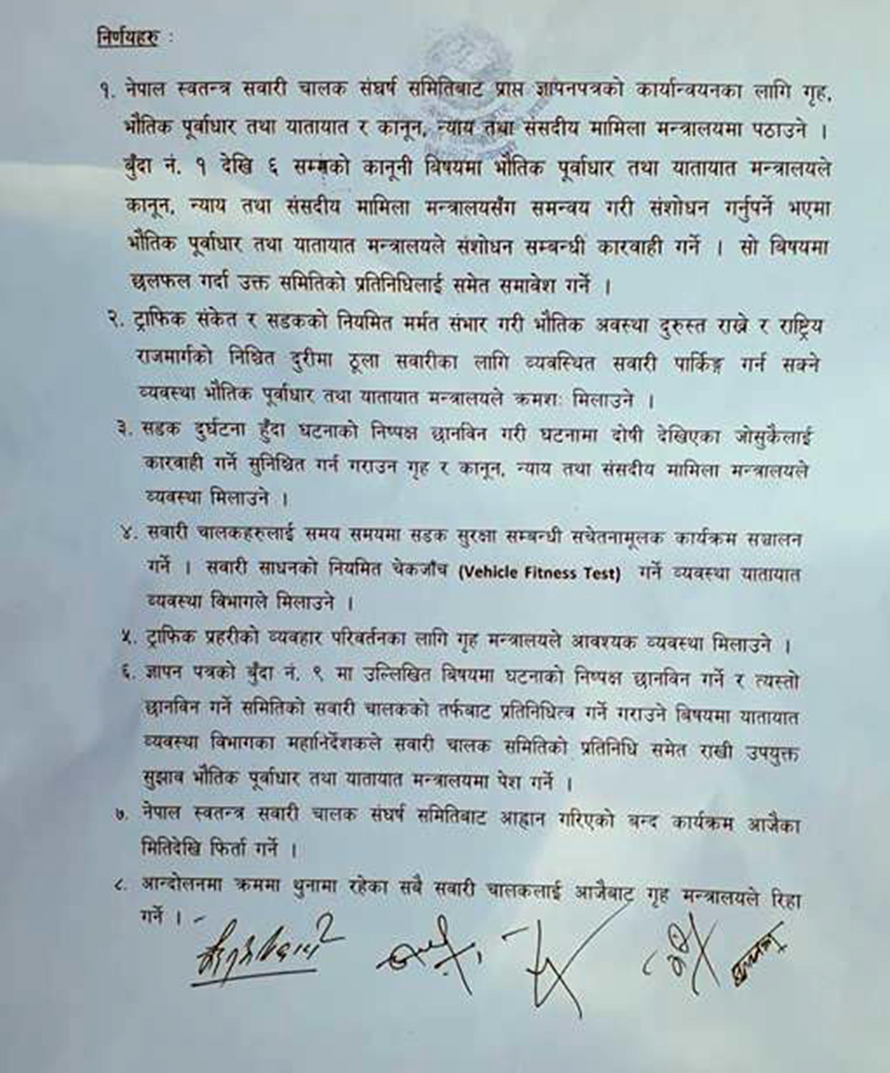 निर्णयहरु :
१. नेपाल स्वतन्त्र सवारी चालक संघर्ष समितिबाट प्राप्त ज्ञापनपत्रको कार्यान्वयनका लागि गृह,
भौतिक पूर्वाधार तथा यातायात र कानून, न्याय तथा संसदीय मामिला मन्त्रालयमा पठाउने ।
बुँदा नं. १ देखि ६ सम्मको कानूनी बिषयमा भौतिक पूर्वाधार तथा यातायात मन्त्रालयले
कानून, न्याय तथा संसदीय मामिला मन्त्रालयसँग समन्वय गरी संशोधन गर्नुपर्ने भएमा
भौतिक पूर्वाधार तथा यातायात मन्त्रालयले संशोधन सम्बन्धी कारवाही गर्ने । सो बिषयमा
छलफल गर्दा उक्त समितिको प्रतिनिधिलाई समेत समावेश गर्ने ।
२. ट्राफिक संकेत र सडकको नियमित मर्मत संभार गरी भौतिक अवस्था दुरुस्त राख्ने र राष्ट्रिय
राजमार्गको निश्चित दुरीमा ठूला सवारीका लागि व्यवस्थित सवारी पार्किङ्ग गर्न सक्ने
व्यवस्था भौतिक पूर्वाधार तथा यातायात मन्त्रालयले क्रमशः मिलाउने ।
३. सडक दुर्घटना हुँदा घटनाको निष्पक्ष छानविन गरी घटनामा दोषी देखिएका जोसुकैलाई
कारवाही गर्ने सुनिश्चित गर्न गराउन गृह र कानून, न्याय तथा संसदीय मामिला मन्त्रालयले
व्यवस्था मिलाउने ।
४. सवारी चालकहरुलाई समय समयमा सडक सुरक्षा सम्बन्धी सचेतनामूलक कार्यक्रम सञ्चालन
गर्ने । सवारी साधनको नियमित चेकजाँच (Vehicle Fitness Test) गर्ने व्यवस्था यातायात
व्यवस्था बिभागले मिलाउने ।
५. ट्राफिक प्रहरीको व्यवहार परिवर्तनका लागि गृह मन्त्रालयले आवश्यक व्यवस्था मिलाउने ।
६. ज्ञापन पत्रको बुँदा नं. ९ मा उल्लिखित बिषयमा घटनाको निष्पक्ष छानविन गर्ने र त्यस्तो
छानविन गर्ने समितिको सवारी चालकको तर्फबाट प्रतिनिधित्व गर्ने गराउने बिषयमा यातायात
व्यवस्था बिभागका महानिर्देशकले सवारी चालक समितिको प्रतिनिधि समेत राखी उपयुक्त
सुझाव भौतिक पूर्वाधार तथा यातायात मन्त्रालयमा पेश गर्ने ।
७. नेपाल स्वतन्त्र सवारी चालक संघर्ष समितिबाट आह्वान गरिएको बन्द कार्यक्रम आजैका
मितिदेखि फिर्ता गर्ने ।
८. आन्दोलनमा क्रममा थुनामा रहेका सबै सवारी चालकलाई आजैबाट गृह मन्त्रालयले रिहा
गर्ने ।